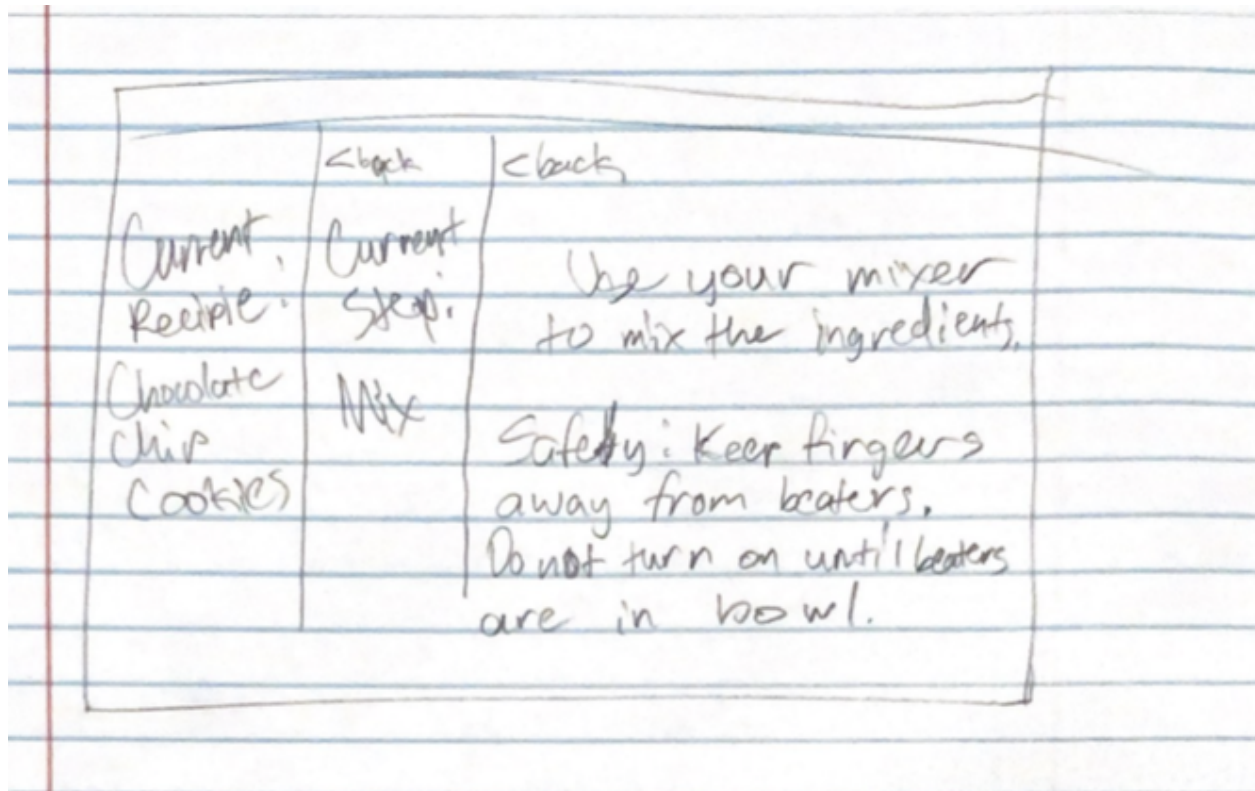 <back
Current
Recipie:
Chocolate
Chip
Cookies
<back
Current
Step:
Mix
Use your mixer
to mix the ingredients.
Safety: Keep fingers
away from beaters.
Do not turn on until beaters
are in bowl.